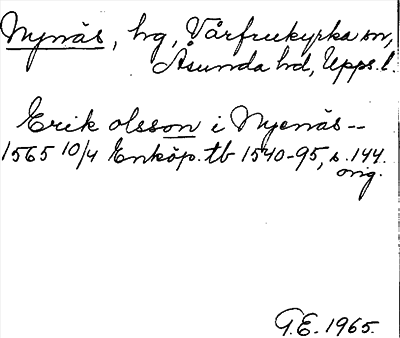 Nynäs, hg, Vårfrukyrka sn,
Åsunda hd, Upps.l.
Erik olsson i Nyenäs--
1565 10/4 Enköp. tb 1540-95, s. 144.
orig.
G.E. 1965.